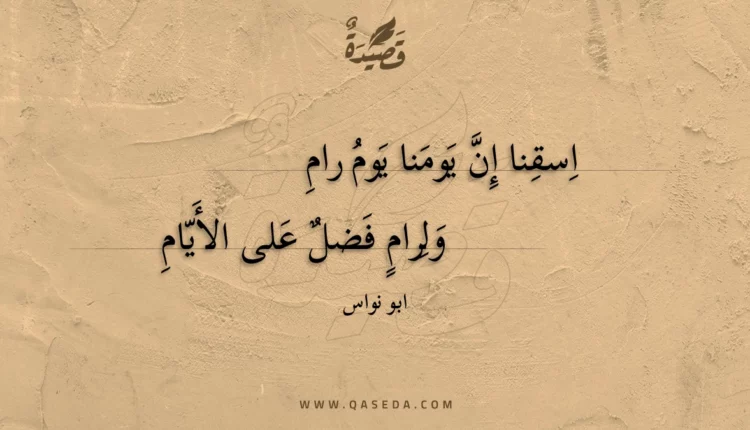 قَصِيْدَةٌ
اِسقِنا إِنَّ يَومَنا يَومُ رامِ
وَلِرامٍ فَضلٌ عَلى الأَيّامِ
ابو نواس
WWW.QASEDA.COM